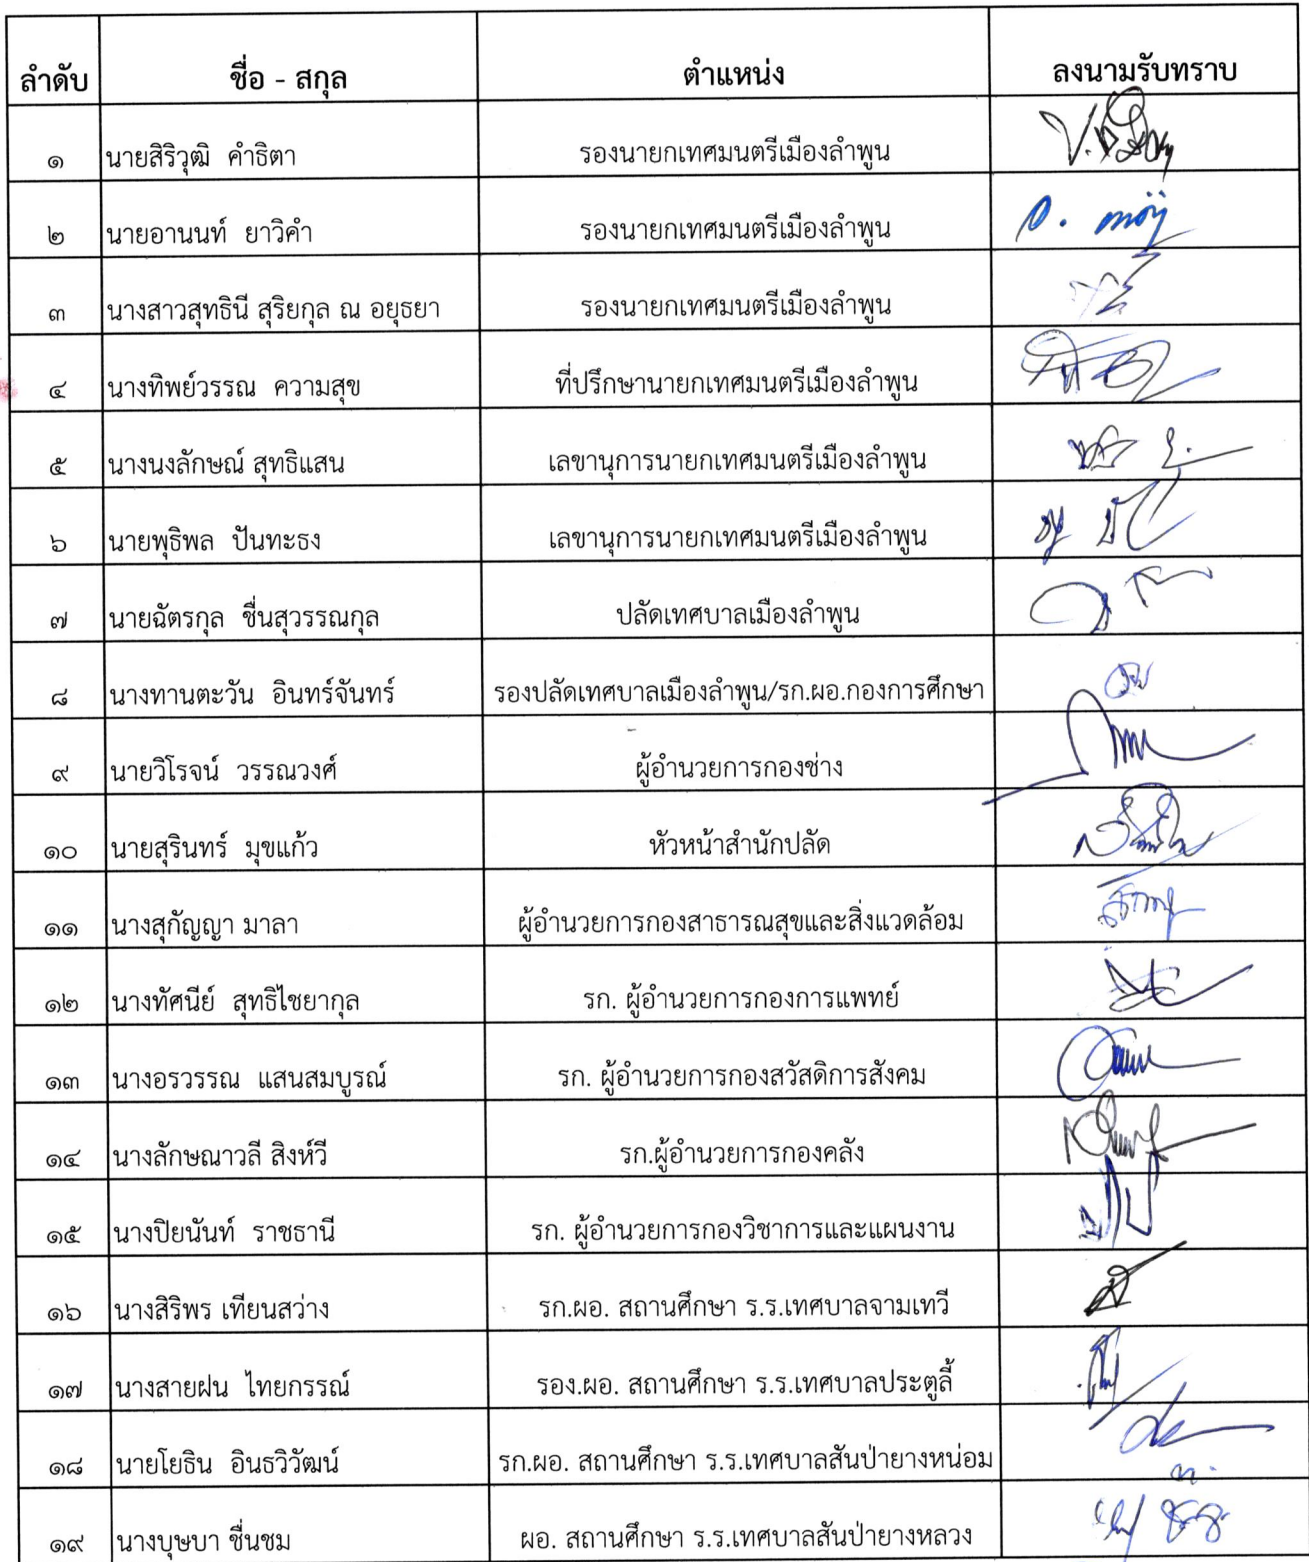 ลำดับ ชื่อ - สกุล ตำแหน่ง ลงนามรับทราบ
๑ นายสิริวุฒิ คำธิตา รองนายกเทศมนตรีเมืองลำพูน
๒ นายอานนท์ ยาวิคำ รองนายกเทศมนตรีเมืองลำพูน
๓ นางสาวสุทธินี สุริยกุล ณ อยุธยา รองนายกเทศมนตรีเมืองลำพูน
๔ นางทิพย์วรรณ ความสุข ที่ปรึกษานายกเทศมนตรีเมืองลำพูน
๕ นางนงลักษณ์ สุทธิแสน เลขานุการนายกเทศมนตรีเมืองลำพูน
๖ นายพุธิพล ปันทะธง เลขานุการนายกเทศมนตรีเมืองลำพูน
๗ นายฉัตรกุล ชื่นสุวรรณกุล ปลัดเทศบาลเมืองลำพูน
๘ นางทานตะวัน อินทร์จันทร์ รองปลัดเทศบาลเมืองลำพูน/รก.ผอ.กองการศึกษา
๙ นายวิโรจน์ วรรณวงศ์ ผู้อำนวยการกองช่าง
๑๐ นายสุรินทร์ มุขแก้ว หัวหน้าสำนักปลัด
๑๑ นางสุกัญญา มาลา ผู้อำนวยการกองสาธารณสุขและสิ่งแวดล้อม
๑๒ นางทัศนีย์ สุทธิไชยากุล รก. ผู้อำนวยการกองการแพทย์
๑๓ นางอรวรรณ แสนสมบูรณ์ รก. ผู้อำนวยการกองสวัสดิการสังคม
๑๔ นางลักษณาวลี สิงห์วี รก.ผู้อำนวยการกองคลัง
๑๕ นางปิยนันท์ ราชธานี รก. ผู้อำนวยการกองวิชาการและแผนงาน
๑๖ นางสิริพร เทียนสว่าง รก.ผอ. สถานศึกษา ร.ร.เทศบาลจามเทวี
๑๗ นางสายฝน ไทยกรรณ์ รอง.ผอ. สถานศึกษา ร.ร.เทศบาลประตูลี้
๑๘ นายโยธิน อินธวิวัฒน์ รก.ผอ. สถานศึกษา ร.ร.เทศบาลสันป่ายางหน่อม
๑๙ นางบุษบา ชื่นชม ผอ. สถานศึกษา ร.ร.เทศบาลสันป่ายางหลวง